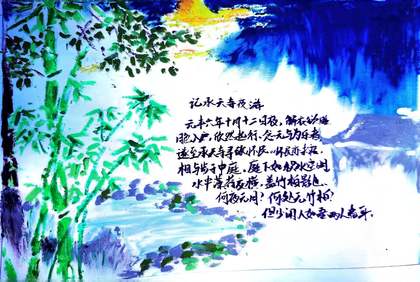 记承天寺夜游
元丰六年十月十二日夜，解衣欲睡
月色入户，欣然起行。念无与为乐者
遂至承天寺寻张怀民。怀民亦未寝
相与步于中庭。庭下如积水空明
水中藻荇交横，盖竹柏影也。
何夜无月？何处无竹柏？
但少闲人如吾两人者耳。